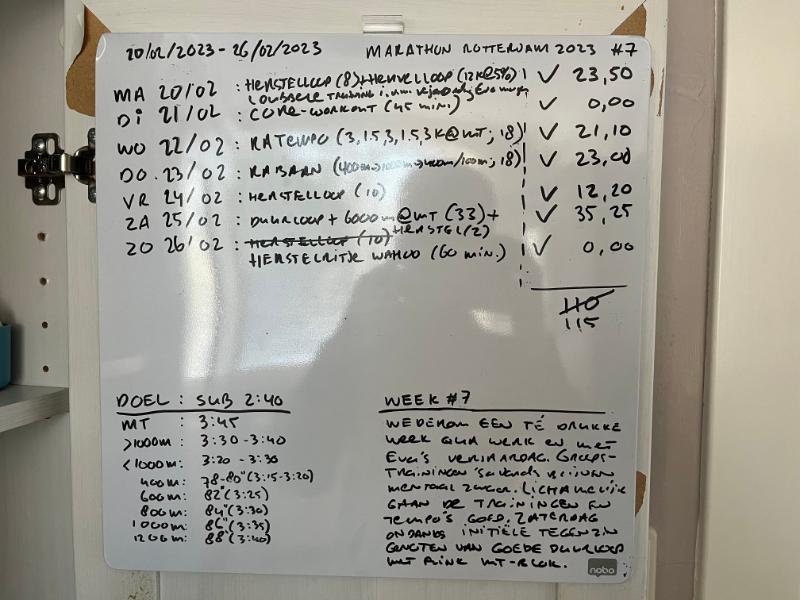 20/02/2023 - 26/02/2023 MARATHON ROTTERDAM 2023 #7
MA 20/02 : HERSTELLOOP (8) + HEUVELLOOP (12K@5%) ✓ 23,50
DUBBELE TRAINING i.v.m. verjaardag Eva morgen
Di 21/02 : CORE-WORKOUT (45 min.) ✓ 0,00
WO 22/02 : KATEMPO (3,1.5,3,1.5,3K@MT; 18) ✓ 21,10
DO 23/02 : KABAAN (400m→1000m→400m/100m; 18) ✓ 23,00
VR 24/02 : HERSTELLOOP (10) ✓ 12,20
ZA 25/02 : DUURLOOP + 6000m@MT (33) + ✓ 35,25
HERSTEL (2)
ZO 26/02 : HERSTELLOOP (10) ✓ 0,00
HERSTELRITJE WAHOO (60 min.)
110
115
DOEL : SUB 2:40
MT : 3:45
>1000m : 3:30 - 3:40
<1000m : 3:20 - 3:30
400m : 78-80" (3:15-3:20)
600m : 82" (3:25)
800m : 84" (3:30)
1000m : 86" (3:35)
1200m : 88" (3:40)
WEEK #7
WEDEROM EEN TÉ DRUKKE
WEEK QUA WERK EN MET
EVA'S VERJAARDAG. GROEPS-
TRAININGEN 'S AVONDS BLIJVEN
MENTAAL ZWAAR. LICHAMELIJK
GAAN DE TRAININGEN EN
TEMPO'S GOED. ZATERDAG
ONDANKS INITIËLE TEGENZIN
GENOTEN VAN GOEDE DUURLOOP
MET FLINK MT-BLOK.
nobo